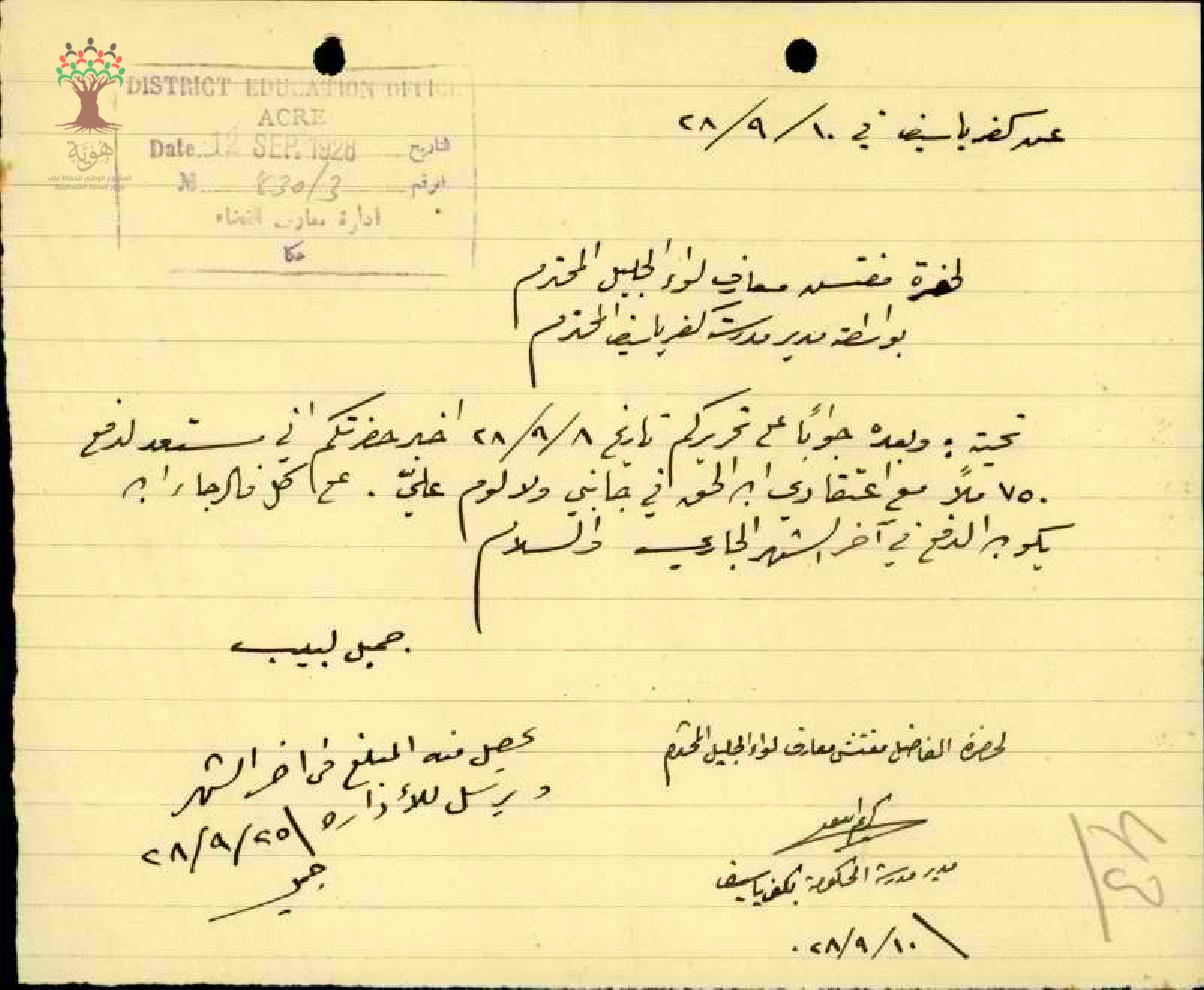 DISTRICT EDUCATION OFFICE
ACRE
Date 12 SEP. 1928 تاريخ
№ 830/3 الرقم
ادارة معارف القضاء
عكا
هوية
المشروع الوطني للحفاظ على
جذور العائلة الفلسطينية
عن كفر ياسيف في ١٠/٩/٢٨
لحضرة مفتش معارف لواء الجليل المحترم
بواسطة مدير مدرسة كفر ياسيف المحترم
تحية : وبعده جوابًا على تحريركم تاريخ ٨/٩/٢٨ اخبر حضرتكم اني مستعد لدفع
٧٥٠ ملًا مع اعتقادي ان الحق في جانبي ولا لوم عليّ . على كل فالرجاء ان
يكون الدفع في آخر الشهر الجاري والسلام
جميل لبيب
لحضرة الفاضل مفتش معارف لواء الجليل المحترم
مدير مدرسة الحكومة بكفر ياسيف
١٠/٩/٢٨
يحصل منه المبلغ في اخر الشهر
ويرسل للأداره
٢٥/٩/٢٨